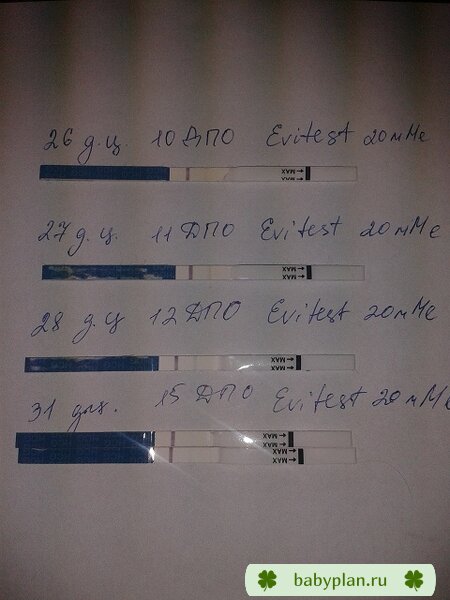 26 д.ц. 10 ДПО Evitest 20мМе
← MAX
← MAX
27 д.ц. 11 ДПО Evitest 20мМе
← MAX
← MAX
28 д.ц 12 ДПО Evitest 20мМе
← MAX
← MAX
31 15 ДПО Evitest 20мМе
← MAX
← MAX
← MAX
← MAX
babyplan.ru